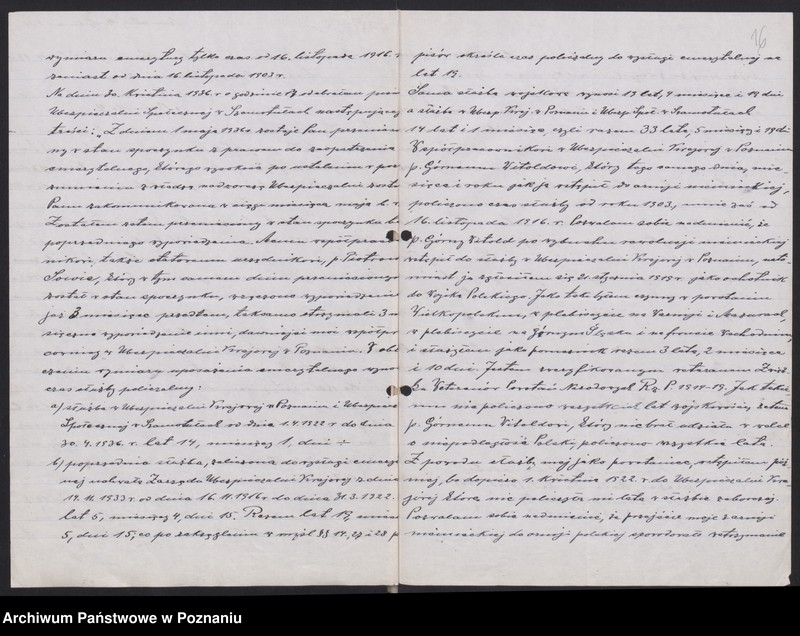 wymiaru emerytury tylko czas od 16. listopada 1916. r
zamiast od dnia 16 listopada 1903 r.
Na dniu 30. kwietnia 1936. r o godzinie
Ubezpieczalni Społecznej w Szamotułach
treści: „Z dniem 1 maja 1936 r zostaje Pan
ny w stan spoczynku z prawem do zaopatrzenia
emerytalnego, którego wysokość po ustaleniu w
z władzą nadzorczą Ubezpieczalni
Panu zakomunikowana w ciągu miesiąca maja b. r.
Zostałem zatem przeniesiony w stan spoczynku
poprzedniego wypowiedzenia. Nawet
także
który w tym samym dniu
został w stan spoczynku,
już 3 miesiące przedtem, otrzymali 3
wypowiedzenie inni,
w Ubezpieczalni Krajowej w Poznaniu.
czeniu wymiaru uposażenia emerytalnego
czas służby policzalny:
a) służba w Ubezpieczalni Krajowej w Poznaniu i
Społecznej w Szamotułach od dnia 1.4.1922 r do dnia
30. 4. 1936. r. lat 14, miesięcy 1, dni +
b) poprzednia służba, zaliczona do wysługi
Zarządu Ubezpieczalni Krajowej z dnia
19. 11. 1933 r. od dnia 16. 11. 1916 r. do dnia 31. 3. 1922.
lat 5, miesięcy 4, dni 15. Razem lat 19,
5, dni 15, co po zaokrągleniu w myśl §§ 14, 27 i 28
16
określa czas policzalny do wysługi emerytalnej na
lat 19.
Sama służba wojskowa wynosi 19 lat, 4 miesiące i 19 dni
a służba w Ubezp. Kraj. w Poznaniu i Ubezp. Społ. w Szamotułach
14 lat i 1 miesiąc, czyli razem 33 lata, 5 miesięcy i 19 dni
Współpracownikowi w Ubezpieczalni Krajowej w Poznaniu
p. Górnemu Witoldowi, który tego samego dnia,
siąca i roku jak ja wstąpił do armji niemieckiej,
policzono czas służby od roku 1903, mnie zaś od
16. listopada 1916. r. Pozwalam sobie nadmienić, że
p. Górny Witold po wybuchu rewolucji niemieckiej
wstąpił do służby w Ubezpieczalni Krajowej w Poznaniu,
miast ja zgłosiłem się 21. stycznia 1919 r. jako ochotnik
do Wojska Polskiego. Jako taki byłem czynny w powstaniu
Wielkopolskim, w plebiscycie na Warmji i Mazurach,
w plebiscycie na Górnym Śląsku i na froncie wschodnim,
i służyłem jako razem 3 lata, 2 miesiące
i 10 dni. Jestem zweryfikowanym weteranem
Weteranów Powstań Narodowych R. P. 1914-19.
nie policzono wszystkich lat wojskowych, zatem
p. Górnemu Witoldowi, który nie brał udziału w walce
o niepodległość Polski, policzono wszystkie lata.
Z powodu służby mojej jako powstaniec, wstąpiłem
bo dopiero 1. kwietnia 1922. r do Ubezpieczalni
Krajowej która nie policzyła mi lata w służbie zaborczej.
Pozwalam sobie nadmienić, że przejście moje z armji
niemieckiej do armji polskiej spowodowało wstrzymanie
Archiwum Państwowe w Poznaniu